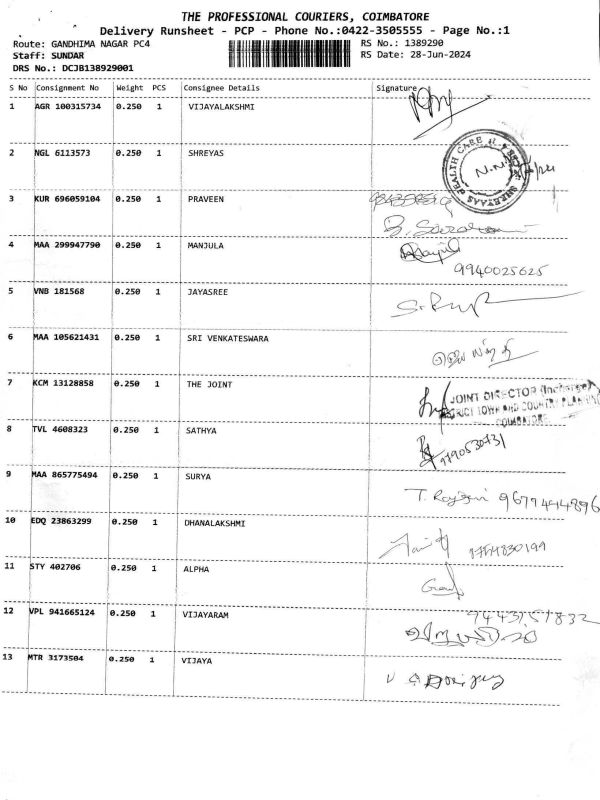 THE PROFESSIONAL COURIERS, COIMBATORE
Delivery Runsheet - PCP - Phone No.:0422-3505555 - Page No.:1
Route: GANDHIMA NAGAR PC4 RS No.: 1389290
Staff: SUNDAR RS Date: 28-Jun-2024
DRS No.: DCJB138929001
S No Consignment No Weight PCS Consignee Details Signature
1 AGR 100315734 0.250 1 VIJAYALAKSHMI
2 NGL 6113573 0.250 1 SHREYAS
SHREYAAS HEALTH CARE
3 KUR 696059104 0.250 1 PRAVEEN
4 MAA 299947790 0.250 1 MANJULA
9940025625
5 VNB 181568 0.250 1 JAYASREE
6 MAA 105621431 0.250 1 SRI VENKATESWARA
7 KCM 13128858 0.250 1 THE JOINT
JOINT DIRECTOR (Incharge)
TOWN AND COUNTRY PLANNING
COIMBATORE
8 TVL 4608323 0.250 1 SATHYA
9790530731
9 MAA 865775494 0.250 1 SURYA
T. 9677444896
10 EDQ 23863299 0.250 1 DHANALAKSHMI
11 STY 402706 0.250 1 ALPHA
12 VPL 941665124 0.250 1 VIJAYARAM
9443151832
13 MTR 3173504 0.250 1 VIJAYA